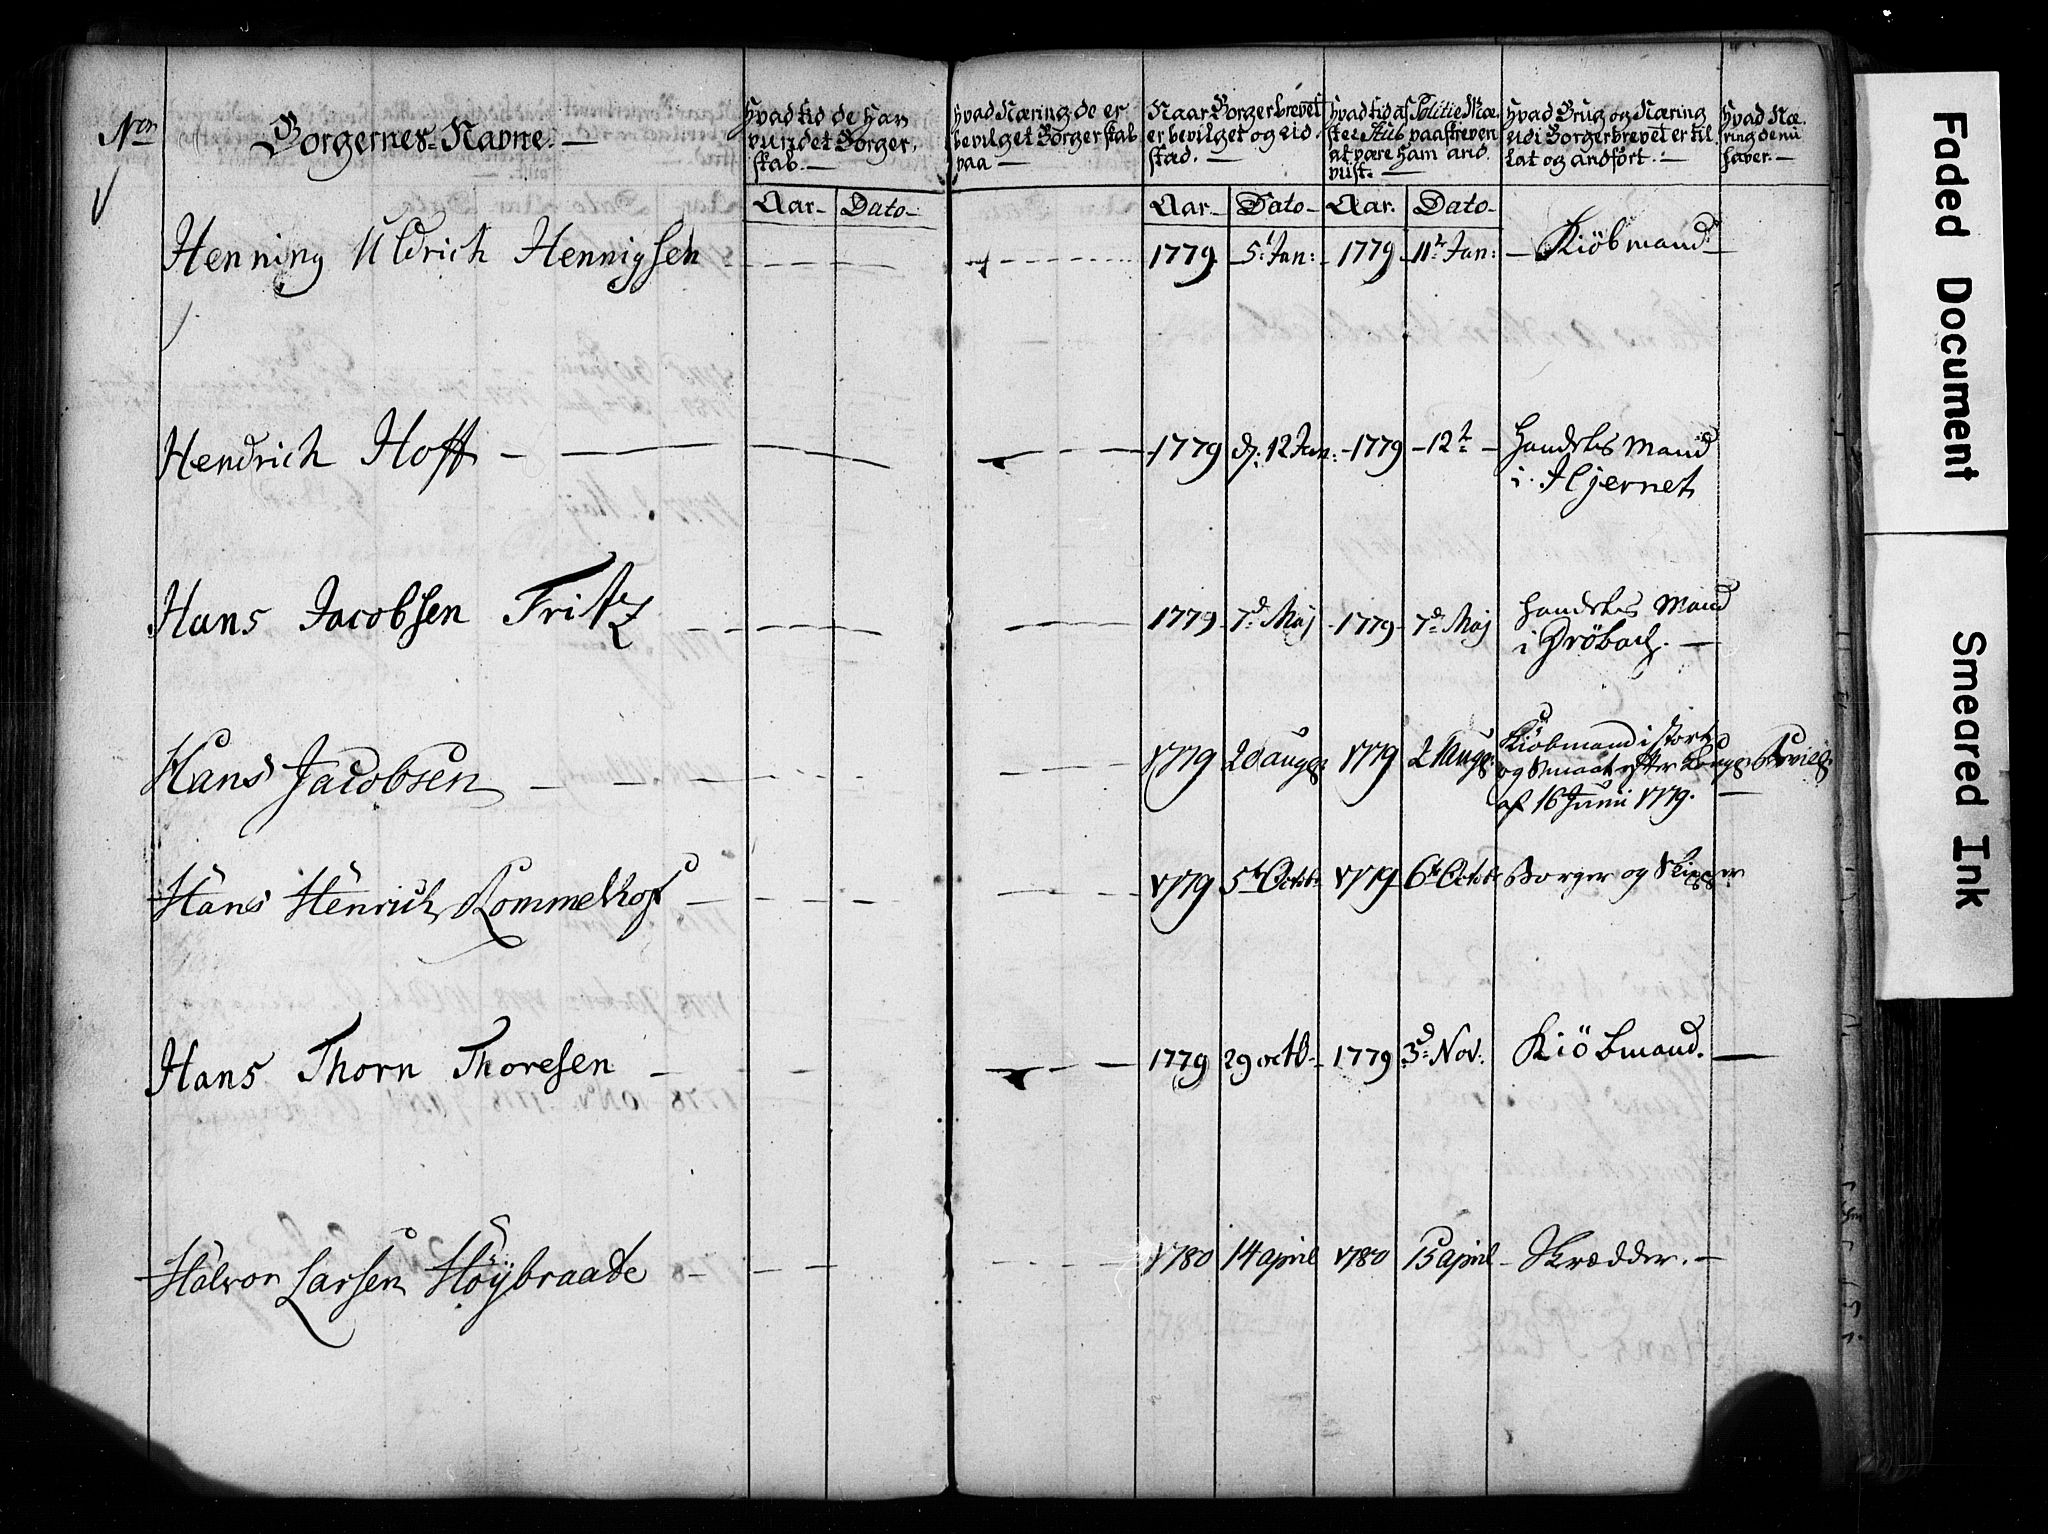 Nrn
Borgernes Navne.
Hvad tid de har
vundet Borger-
skab.
Hvad Næring de er
bevilget Borgerskab
paa
Naar Borgerbrevet
er bevilget og ud
stæd.
Hvad tid af Politie Mæ
ster
paaskreven
at være ham and
viist.
Hvad Brug og Næring
udi Borgerbrevet er til
lat og andført.
Hvad Næ
ring de nu
haver.
Aar Dato Aar Dato Aar. Dato
Henning Uldrich Hennigsen 1779 5t Jan: 1779 11te Jan: Kiöbmand
Hendrich Hoff 1779 d: 12 Jan: 1779 12te Handels Mand
i
Hans Jacobsen Fritz 1779 7d Maj 1779 7d Maj Handels Mand
i Dröbach.
Hans Jacobsen 1779 20 aug 1779 21 Aug Kiöbmand i stort
og smaat efter
af 16 Junii 1779.
Hans Henrich Rommelhof 1779 5te Octob 1779 6te Octob Borger og Skipper
Hans Thorn Thoresen 1779 29 octb 1779 3d Nov: Kiöbmand.
Halvor Larsen Höybraate 1780 14 april 1780 15 april Skrædder.
Faded Document
Smeared Ink